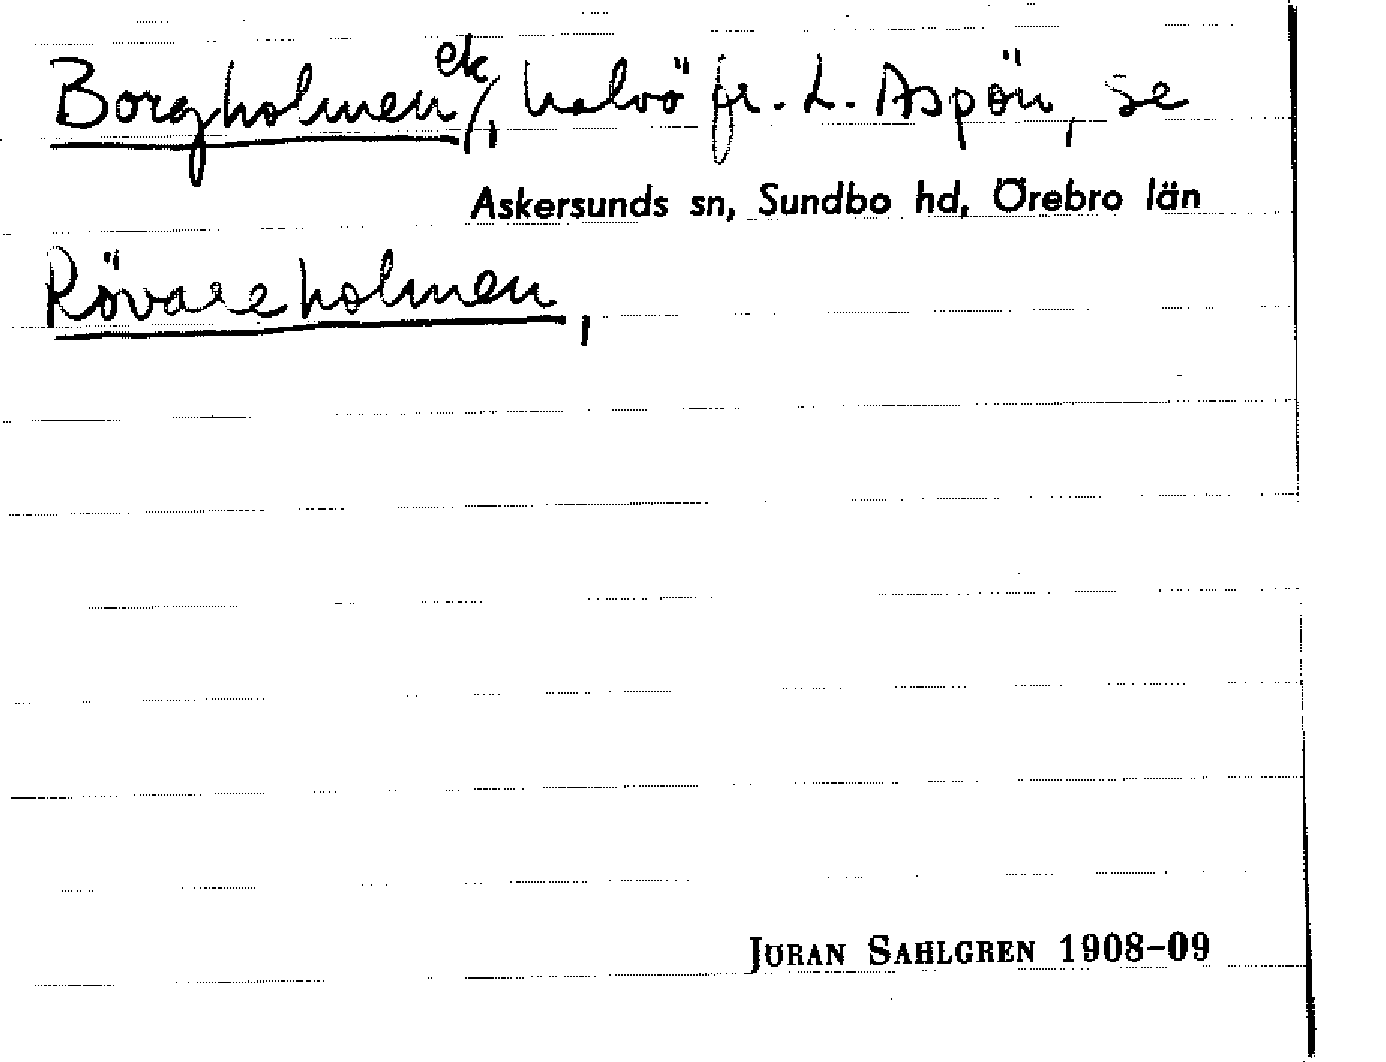 Borgholmen ek/, halvö fr. L. Aspön, se
Askersunds sn, Sundbo hd, Örebro län
Rövareholmen,
JÖRAN SAHLGREN 1908-09